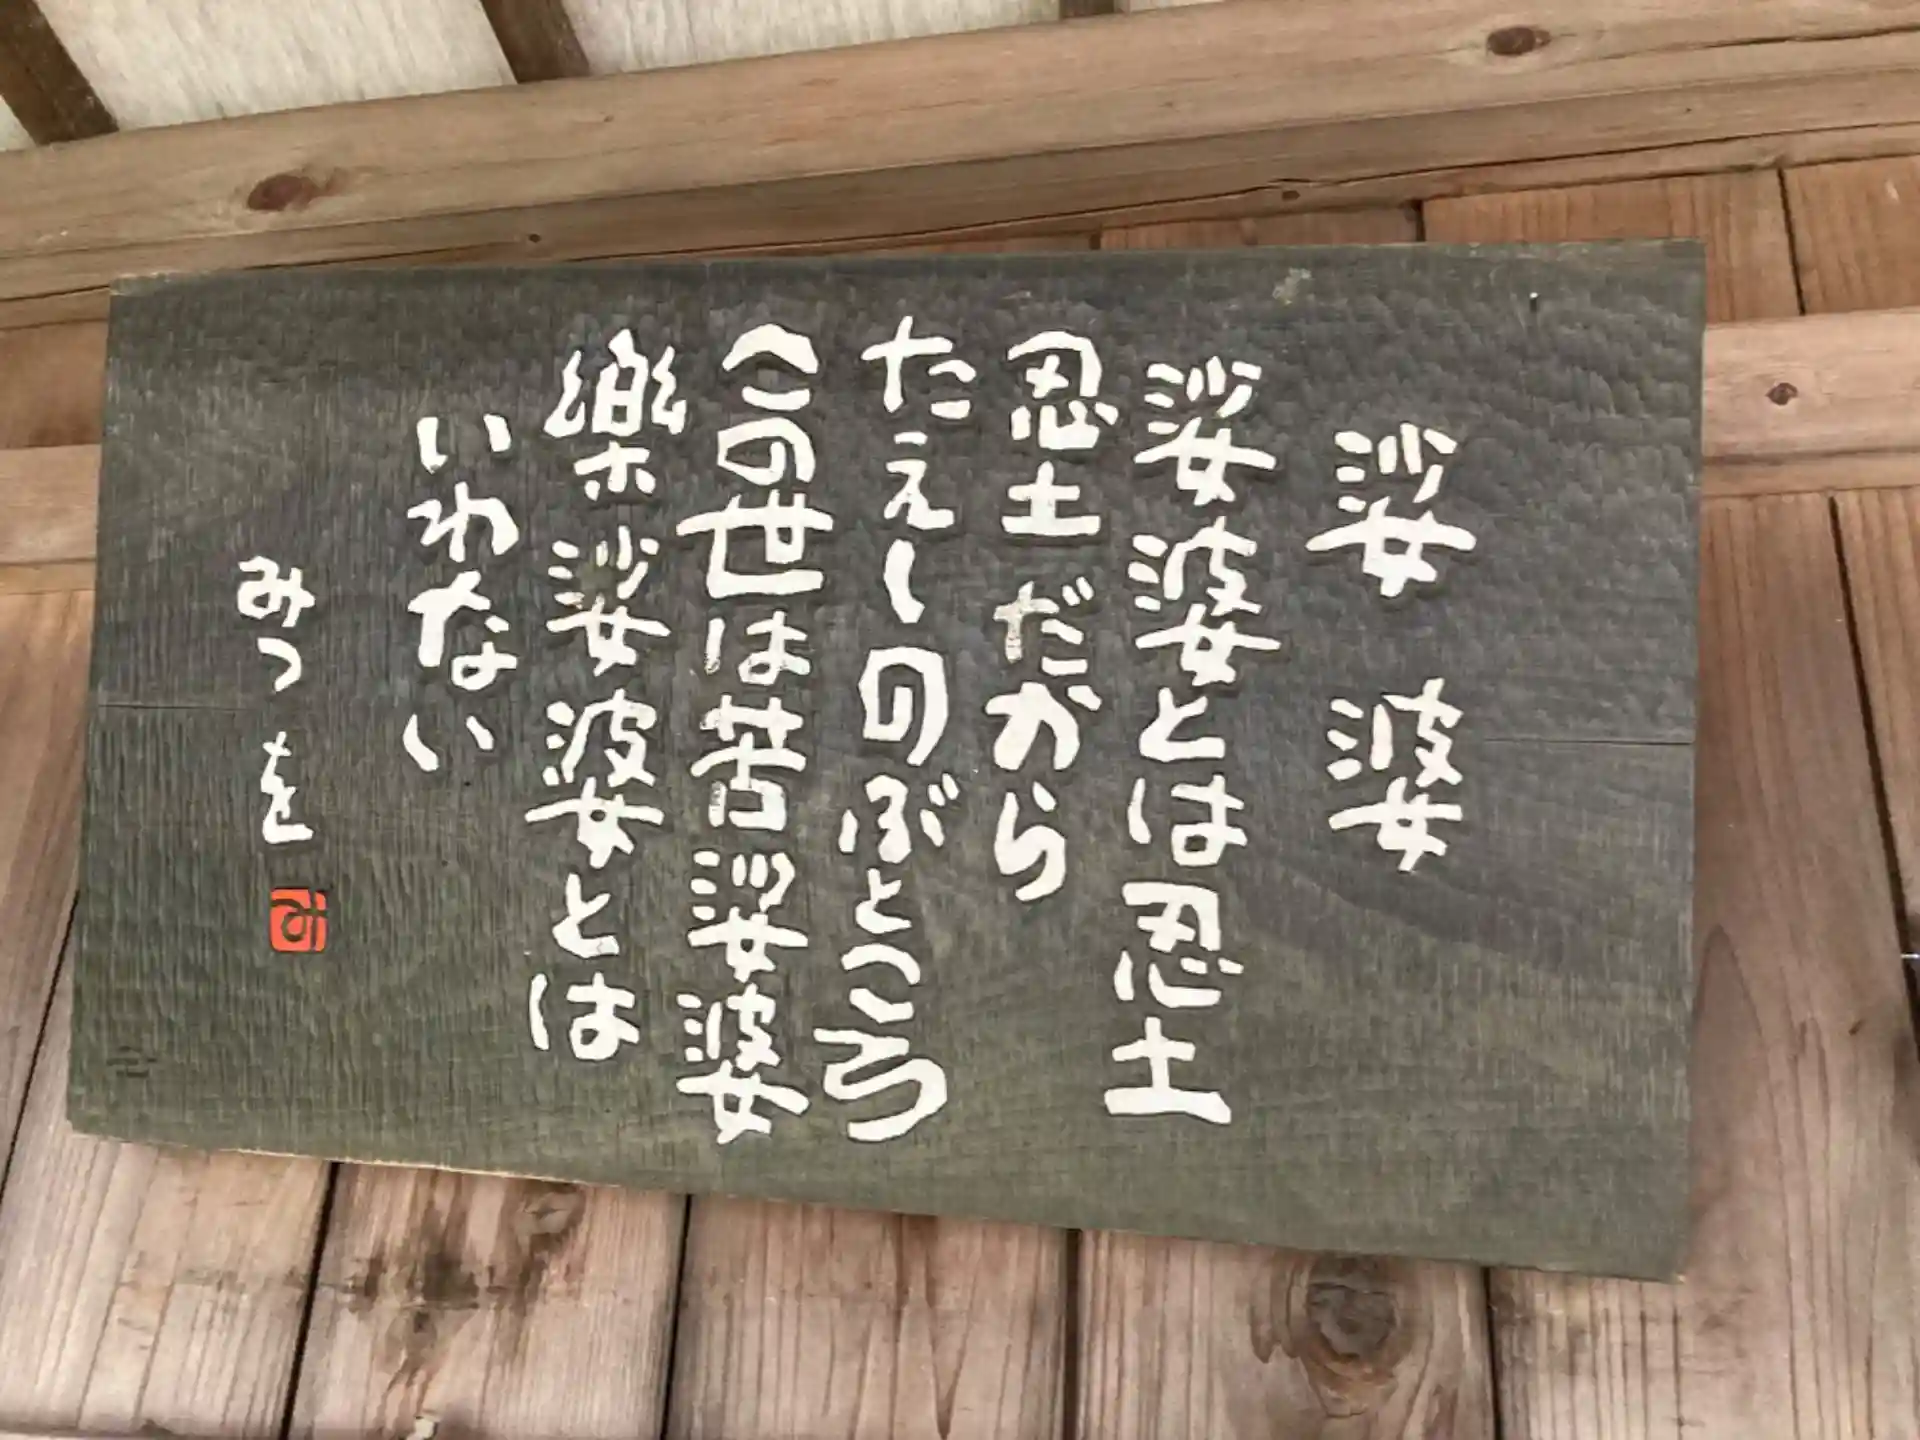 娑婆
娑婆とは忍土
忍土だから
たえしのぶところ
この世は苦娑婆
樂娑婆とは
いわない
みつを